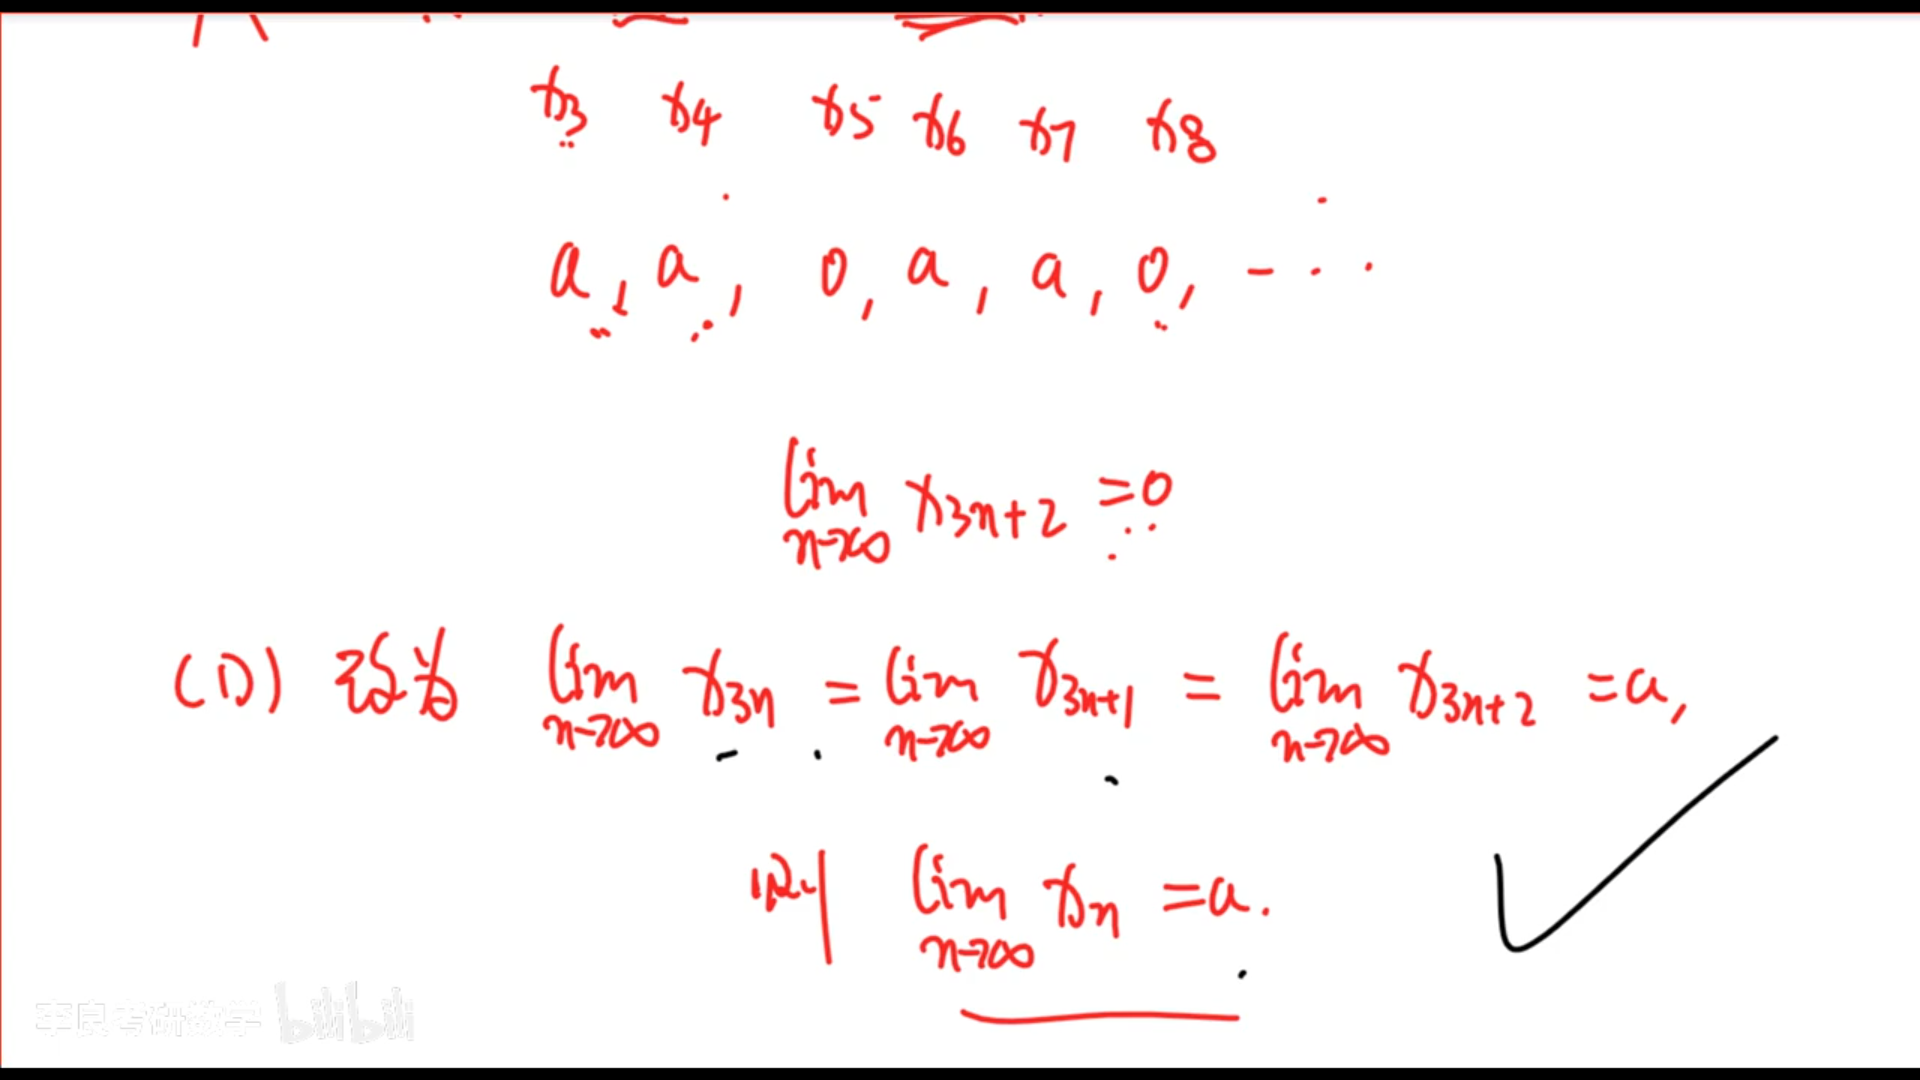 x3 x4 x5 x6 x7 x8
a, a, 0, a, a, 0, - · ·
lim n→∞ x3n+2 = 0
(D) 改为 lim n→∞ x3n = lim n→∞ x3n+1 = lim n→∞ x3n+2 = a,
则 lim n→∞ xn = a.
李良考研数学 bilibili